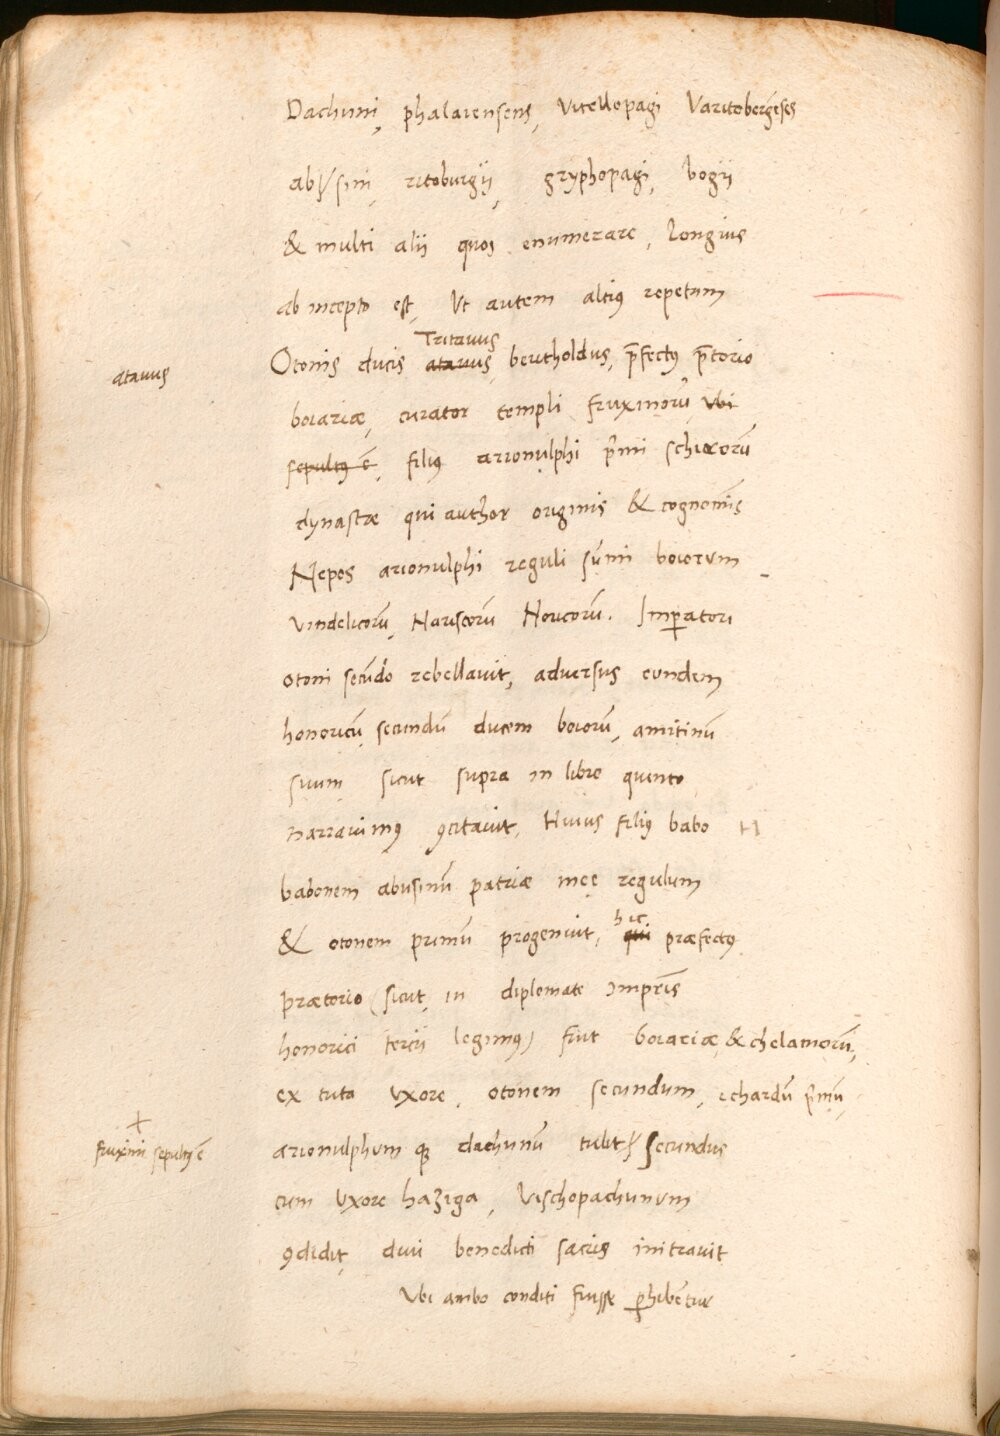 Dachuni, phalaiensens, vitellopagi Varitobergēses
abſſini, ritoburgij, gryphopagi, bogij
& multi alij quos enumerare, longius
ab incepto est, Ut autem altiꝰ repetam
Tritauus
atauus
Otonis ducis atauus, bertholdus, p̄fectꝰ p̄torio
boiariæ, curator templi fruxinorū ubi
sepultꝰ ē, filiꝰ arionulphi p̄mi schirorū
dynastæ qui author originis & cognomīs
Nepos arionulphi reguli sūmi boiorum
vindelicorū, Nariscorū Noricorū. Imperatori
otoni secūdo rebellauit, aduersus eundem
honoricū secundū ducem boiorū, amitinū
suum sicut supra in libro quinto
narrauimꝰ ꝯcitauit, Huius filiꝰ babo
babonem abusinū patriæ meę regulum
hic
& otonem primū progenuit, qui præfectꝰ
prætorio (sicut in diplomate Imp̄ris
honorici tercij legimꝰ) fuit boiariæ, & chelamorū,
ex tuta uxore, otonem secundum, echardū p̄mū,
fruxini sepultꝰ ē
arionulphum qꝫ dachunū tulit, Secundus
cum uxore haziga, Vischopachunum
ꝯdidit, diui benedicti sacris initiauit
Ubi ambo conditi fuisse ꝑhibētur